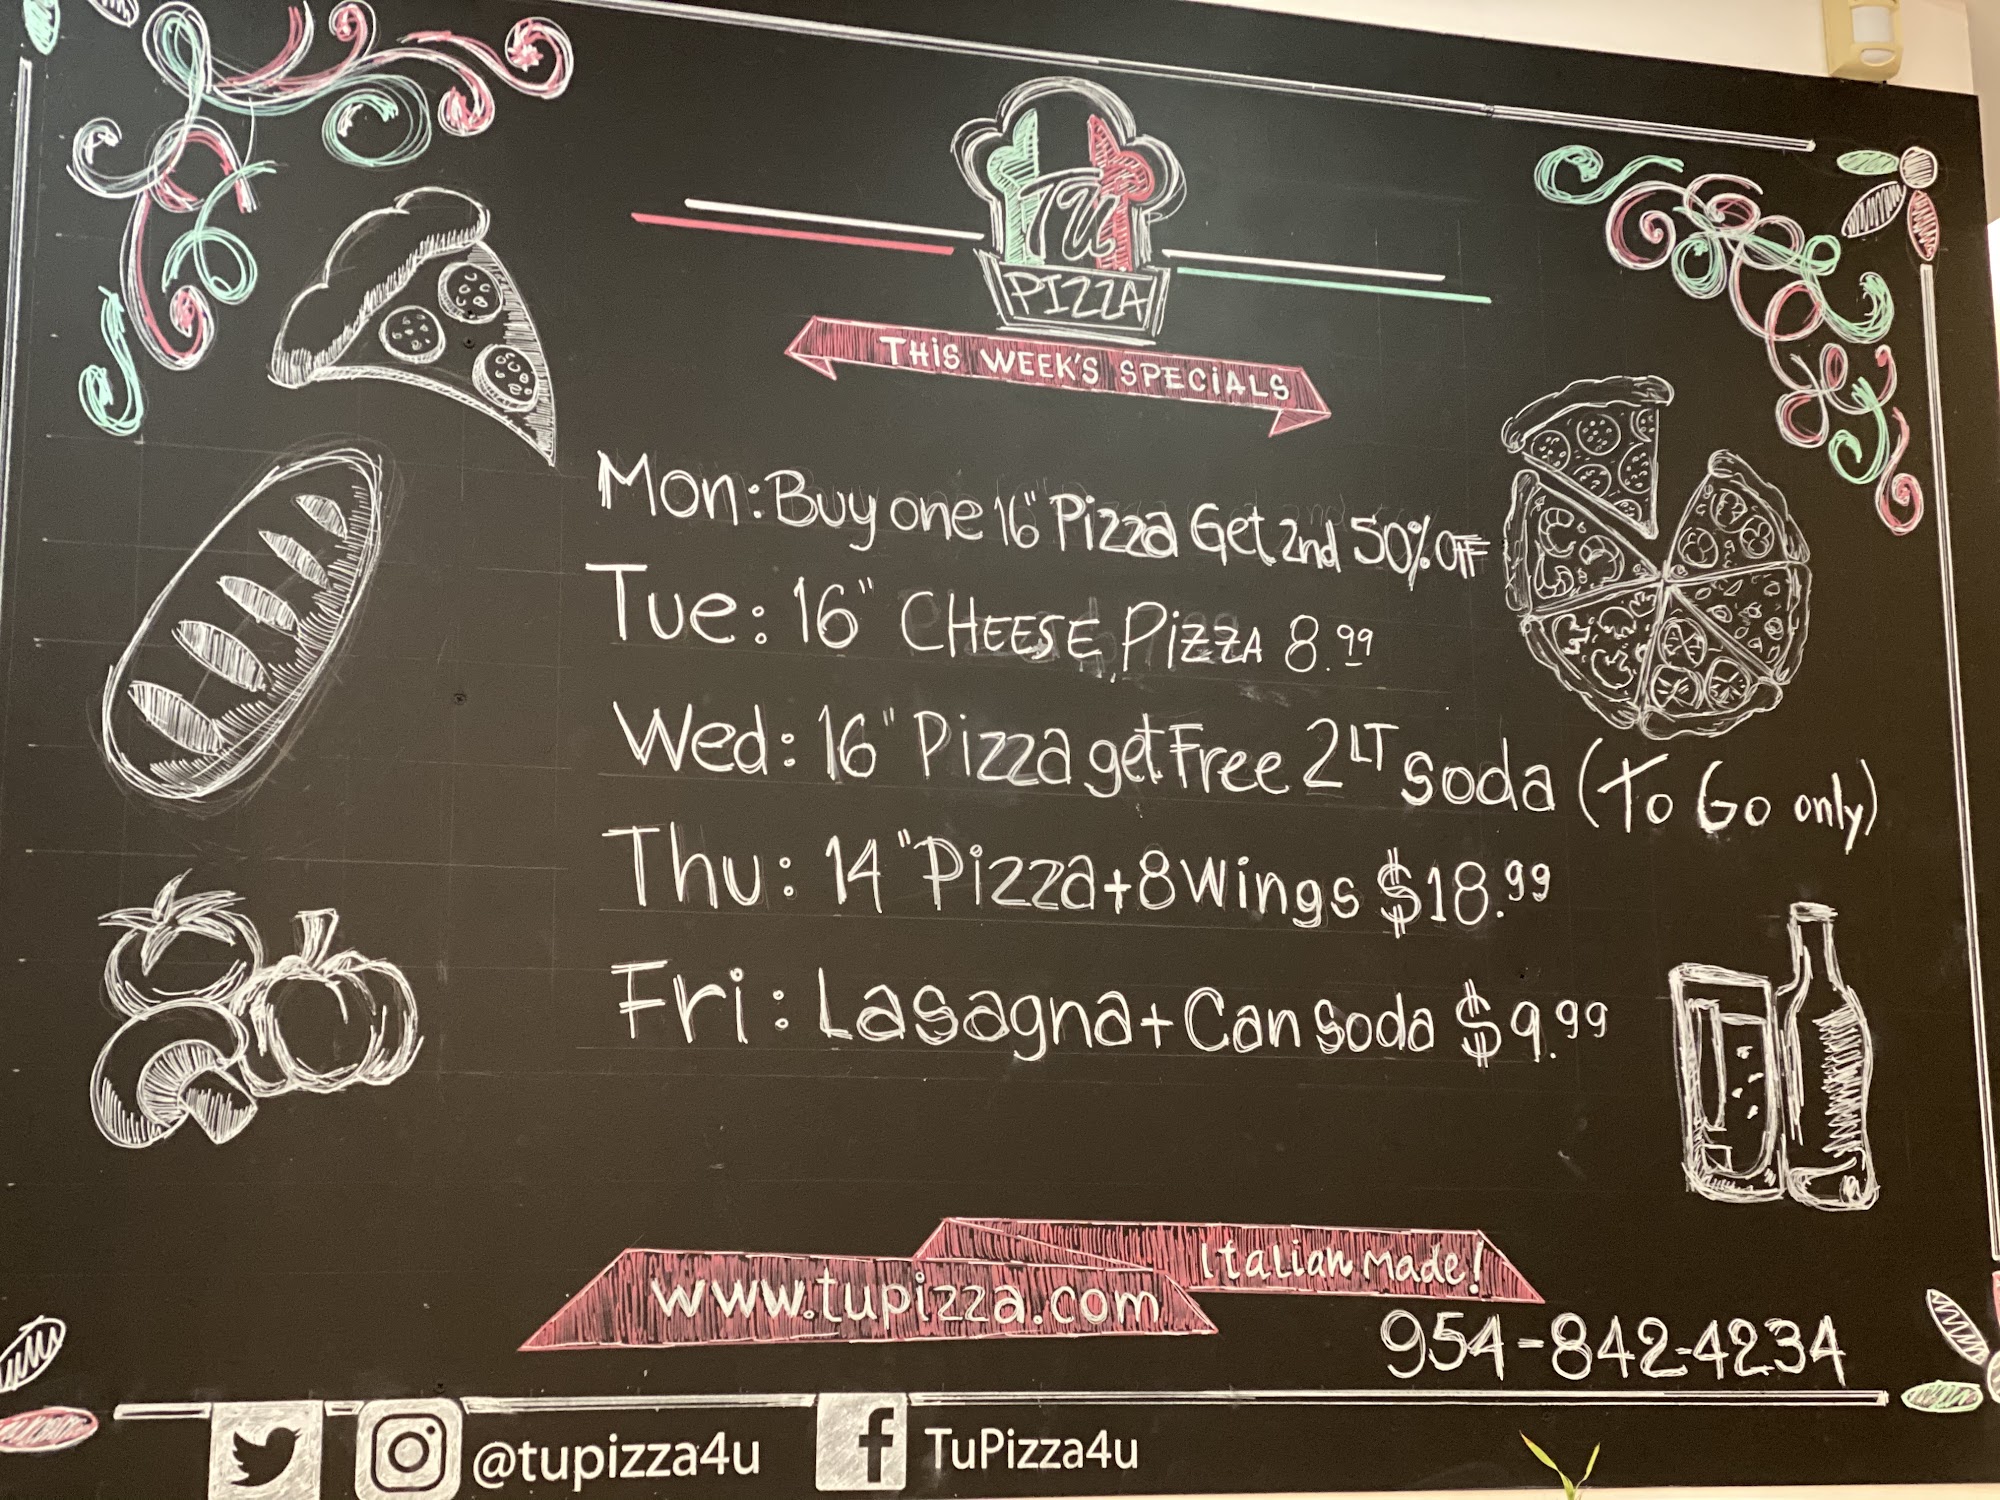 Tu
PIZZA
THIS WEEK'S SPECIALS
Mon: Buy one 16" Pizza Get 2nd 50% OFF
Tue: 16" CHEESE PIZZA 8.99
Wed: 16" Pizza get Free 2LT Soda (To Go only)
Thu: 14" Pizza + 8 Wings $18.99
Fri: Lasagna + Can Soda $9.99
Italian Made!
www.tupizza.com
954-842-4234
@tupizza4u
f TuPizza4u